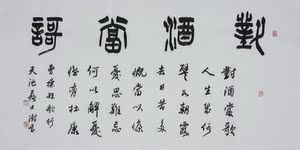 對酒當謌
對酒當歌
人生幾何
譬如朝露
去日苦多
慨當以慷
憂思難忘
何以解憂
惟有杜康
曹操短歌行
天池